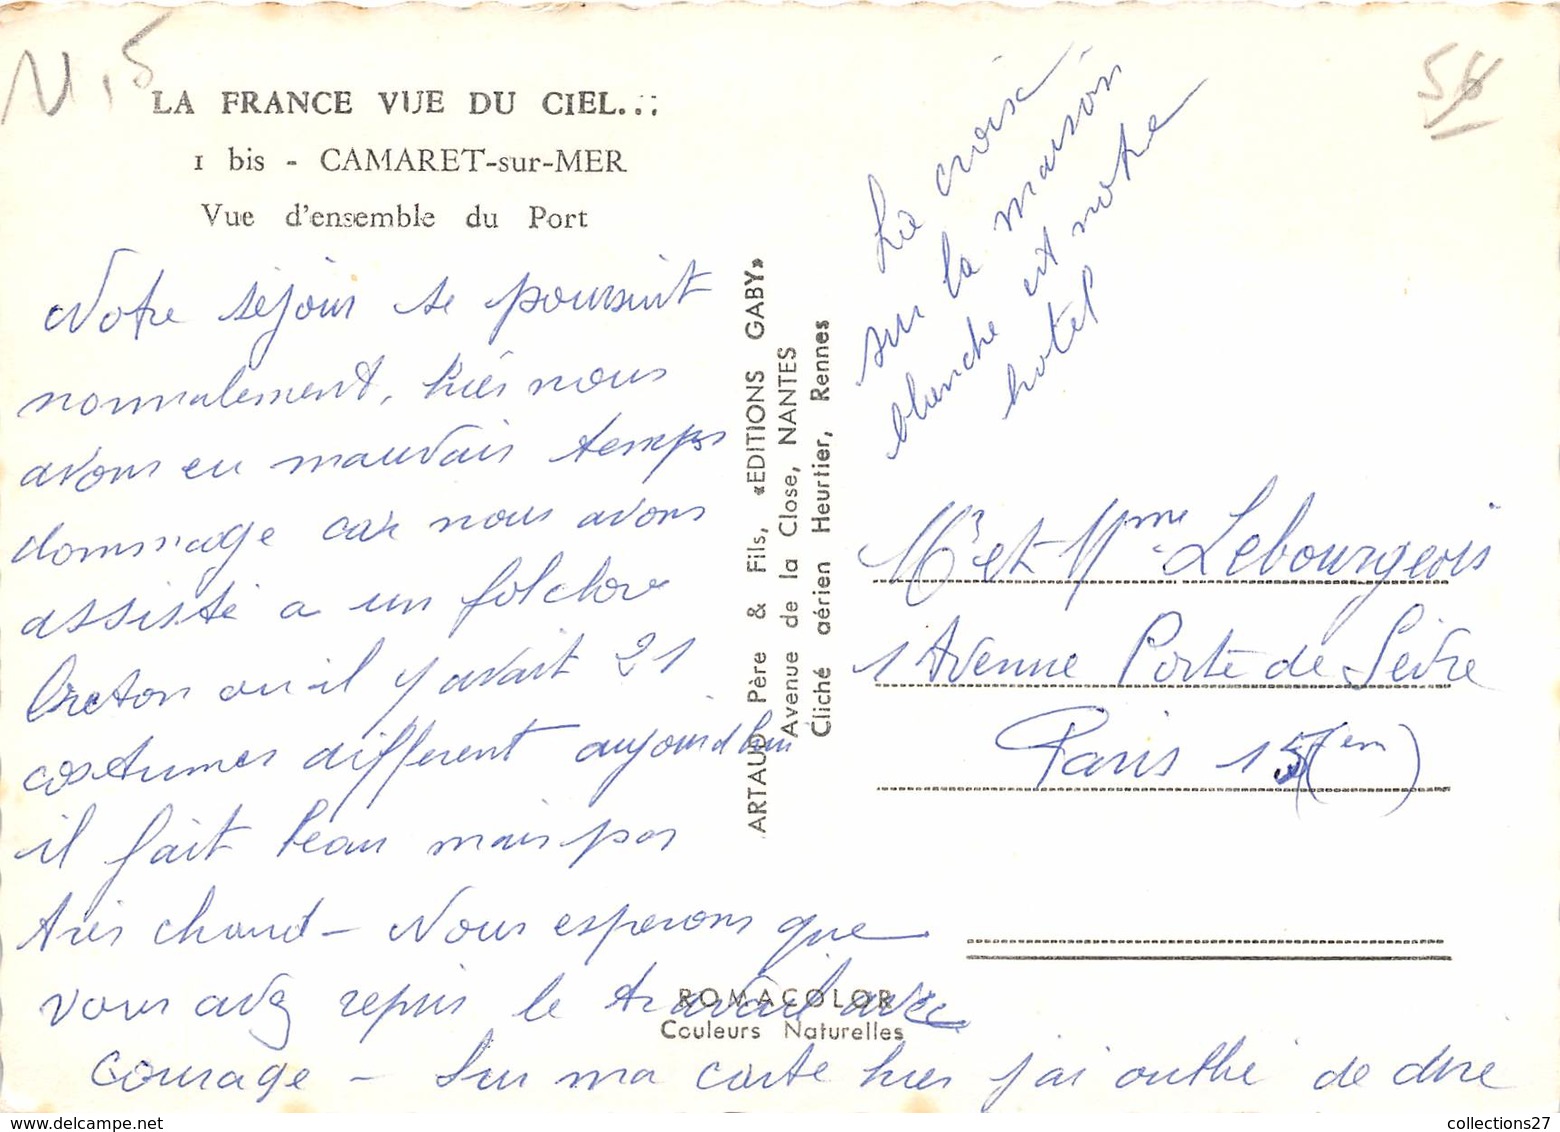 N,5
LA FRANCE VUE DU CIEL...
1 bis - CAMARET-sur-MER
Vue d'ensemble du Port
Notre séjour se poursuit
normalement, hier nous
avons eu mauvais temps
dommage car nous avons
assisté a un folclore
breton ou il y avait 21
costumes different aujourd'hui
il fait beau mais pas
très chaud - Nous esperons que
vous avez repris le travail avec
courage - Sur ma carte hier j'ai oublié de dire
ARTAUD Père & Fils, «EDITIONS GABY»
Avenue de la Close, NANTES
Cliché aérien Heurtier, Rennes
ROMACOLOR
Couleurs Naturelles
La croix
sur la maison
blanche est notre
hotel
Mr et Mme Lebourgeois
1 Avenue Porte de Sèvre
Paris 15(em)
collections27